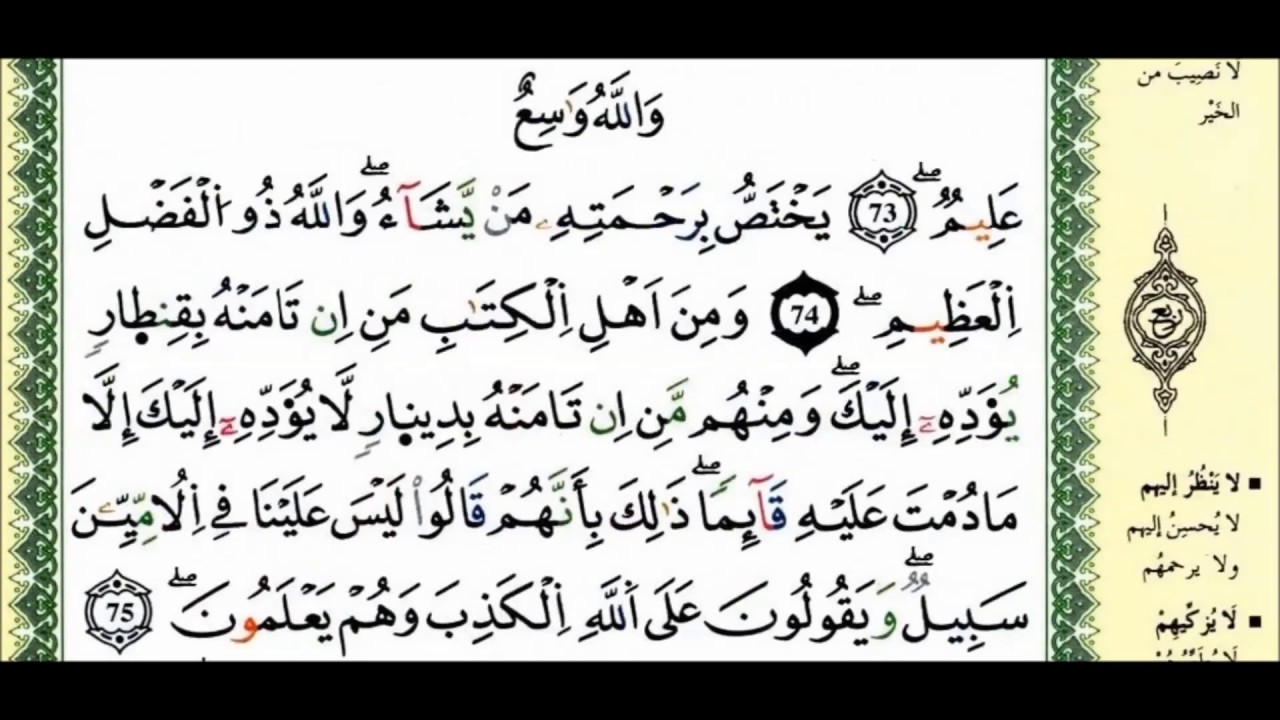 وَاللَّهُ وَٰسِعٌ
عَلِيمٌ ۖ 73 يَخْتَصُّ بِرَحْمَتِهِۦ مَنْ يَّشَآءُ ۖ وَاللَّهُ ذُو اُ۬لْفَضْلِ
اِ۬لْعَظِيمِ ۖ 74 وَمِنَ اَهْلِ اِ۬لْكِتَٰبِ مَنِ اِن تَامَنْهُ بِقِنطِارٖ
يُؤَدِّهِۦٓ إِلَيْكَ ۖ وَمِنْهُم مَّنِ اِن تَامَنْهُ بِدِينِارٖ لَّا يُؤَدِّهِۦٓ إِلَيْكَ إِلَّا
مَا دُمْتَ عَلَيْهِ قَآئِمًا ۖ ذَٰلِكَ بِأَنَّهُمْ قَالُوا۟ لَيْسَ عَلَيْنَا فِي اِ۬لُامِّيِّۦنَ
سَبِيلٌ ۖ وَيَقُولُونَ عَلَى اَ۬للَّهِ اِ۬لْكَذِبَ وَهُمْ يَعْلَمُونَ ۖ 75
لا نَصِيبَ من
الخَيْر
ربع
■ لا يَنْظُرُ إليهم
لا يُحسِنُ إليهم
ولا يرحمهُم
■ لَا يُزَكِّيهِمْ